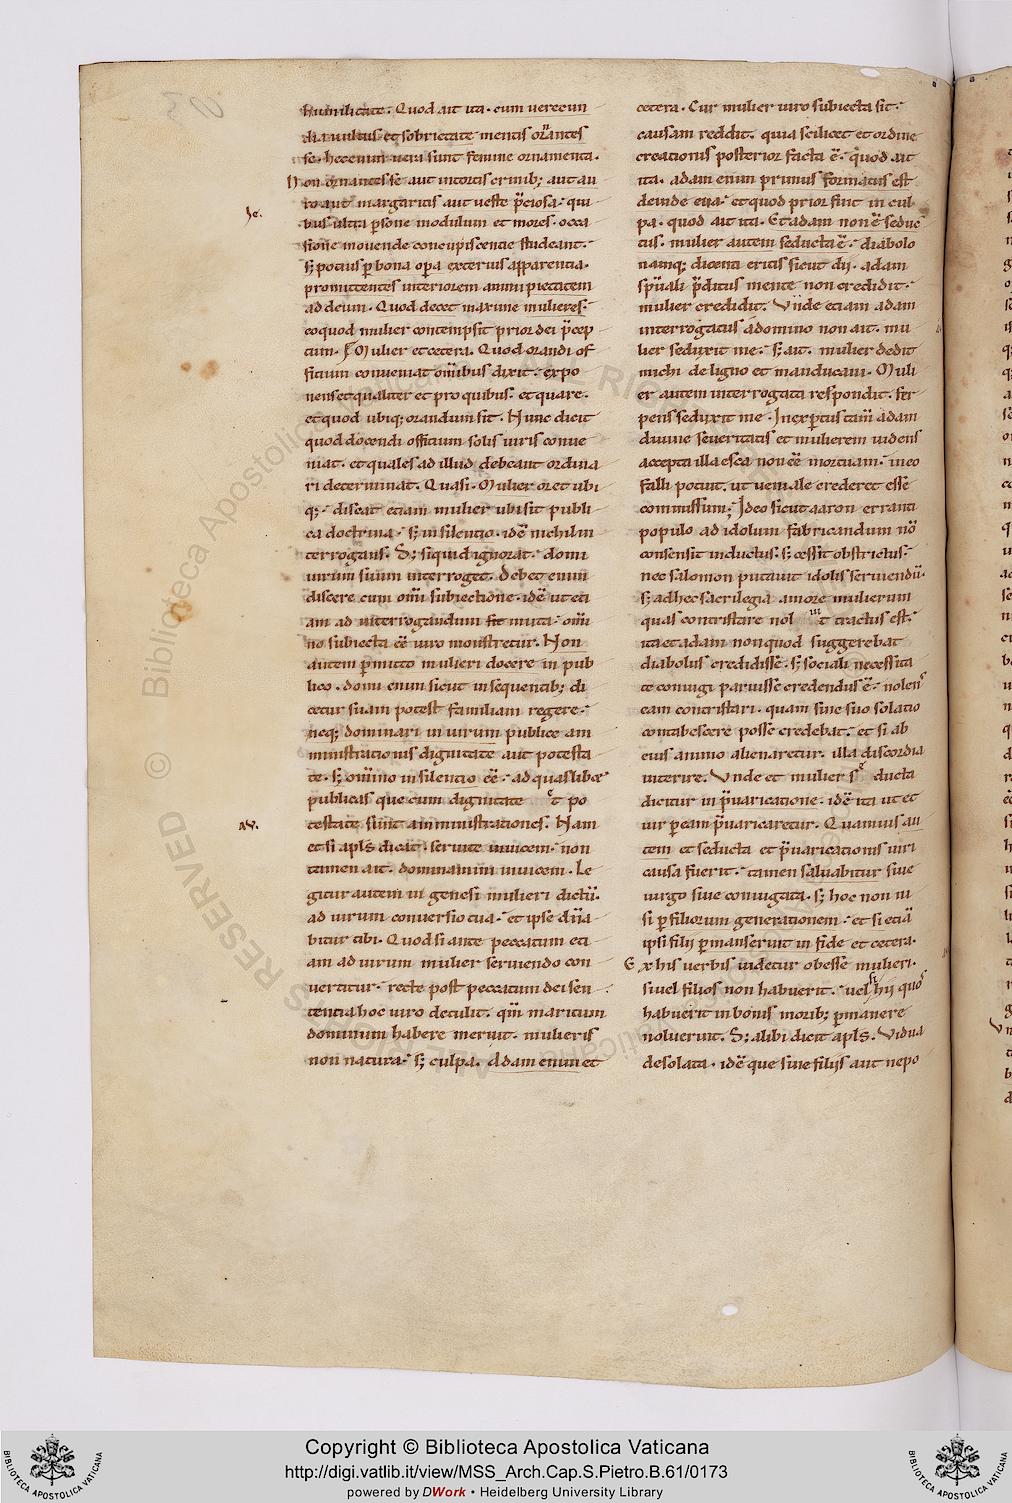 humilitate. Quod ait ita. cum verecun
dia vultus et sobrietate mentis ornantes
se. hec enim vera sunt femine ornamenta.
Non ornantes se aut intortis crinib; aut au
ro aut margaritis aut veste p̄ciosa. qui
bus ultra psone modulum et mores. occa
sione movende concupiscentie studeant.
s; potius p bona opa exterius apparentia.
promittentes interiorem animi pietatem
ad deum. Quod decet maxime mulieres.
eo quod mulier contempsit prior dei p̄cep
tum. Mulier et cetera. Quod orandi of
ficium conveniat om̄ibus dixit. expo
nens et qualiter et pro quibus. et quare.
et quod ubiq; orandum sit. Nunc dicit
quod docendi officium solis viris conve
niat. et quales ad illud debeant ordina
ri determinat. Quasi. Mulier oret ubi
q;. discat etiam mulier ubi sit publi
ca doctrina. s; in silentio. idē nichil in
terrogans. S; si quid ignorat. domi
virum suum interroget. Debet enim
discere cum om̄i subiectione. idē ut eti
am ad interrogandum sit muta. om̄i
no subiecta eē viro monstretur. Non
autem pmitto mulieri docere in pub
lico. domi enim sicut in sequentib; di
cetur suam potest familiam regere.
neq; dominari in virum publice am
ministrationis dignitate aut potesta
te. s; om̄ino in silentio eē. ad quaslibet
publicas que cum dignitate t po
testate sunt amministrationes. Nam
et si apls dicat. servite invicem. non
tamen ait. dominamini invicem. Le
gitur autem in genesi mulieri dictū.
ad virum conversio tua. et ipse dn̄a
bitur tibi. Quod si ante peccatum eti
am ad virum mulier serviendo con
vertitur. recte post peccatum dei sen
tentia hoc viro detulit. qm̄ maritum
dominum habere meruit. mulieris
non natura. s; culpa. Adam enim et
cetera. Cur mulier viro subiecta sit.
causam reddit. quia scilicet et ordine
creationis posterior facta ē. quod ait
ita. adam enim primus formatus est
deinde eva. et quod prior fuit in cul
pa. quod ait ita. Et adam non ē seduc
tus. mulier autem seducta ē. diabolo
namq; dicenti eritis sicut dij. adam
spūali p̄ditus mente non credidit.
mulier credidit. Unde etiam adam
interrogatus a domino non ait. mu
lier seduxit me. s; ait. mulier dedit
michi de ligno et manducavi. Muli
er autem interrogata respondit. ser
pens seduxit me. Inexptus tam̄ adam
divine severitatis et mulierem videns
accepta illa esca non eē mortuam. in eo
falli potuit. ut veniale crederet esse
commissum; Ideo sicut aaron erranti
populo ad idolum fabricandum nō
consensit inductus. s; cessit obstrictus.
nec salomon putavit idolis serviendū.
s; ad hec sacrilegia amore mulierum
quas contristare nol t tractus est.
ita et adam non quod suggerebat
diabolus credidisse. s; sociali necessita
te coniugi paruisse credendus ē. nolens
eam contristari. quam sine suo solatio
contabescere posse credebat. et si ab
eius animo alienaretur. illa discordia
interire. Unde et mulier seducta
dicitur in p̄varicatione. idē ita ut et
vir p eam p̄varicaretur. Quamvis au
tem et seducta et p̄varicationis viri
causa fuerit. tamen salvabitur sive
virgo sive coniugata. s; hoc non ni
si p filiorum generationem. et si etiā
ipsi filij pmanserint in fide et cetera.
Ex his verbis videtur obesse mulieri.
si vel filios non habuerit. vel si hij quos
habuerit in bonis morib; pmanere
noluerint. S; alibi dicit apls. Vidua
desolata. idē que sine filijs aut nepo
Copyright © Biblioteca Apostolica Vaticana
http://digi.vatlib.it/view/MSS_Arch.Cap.S.Pietro.B.61/0173
powered by DWork • Heidelberg University Library